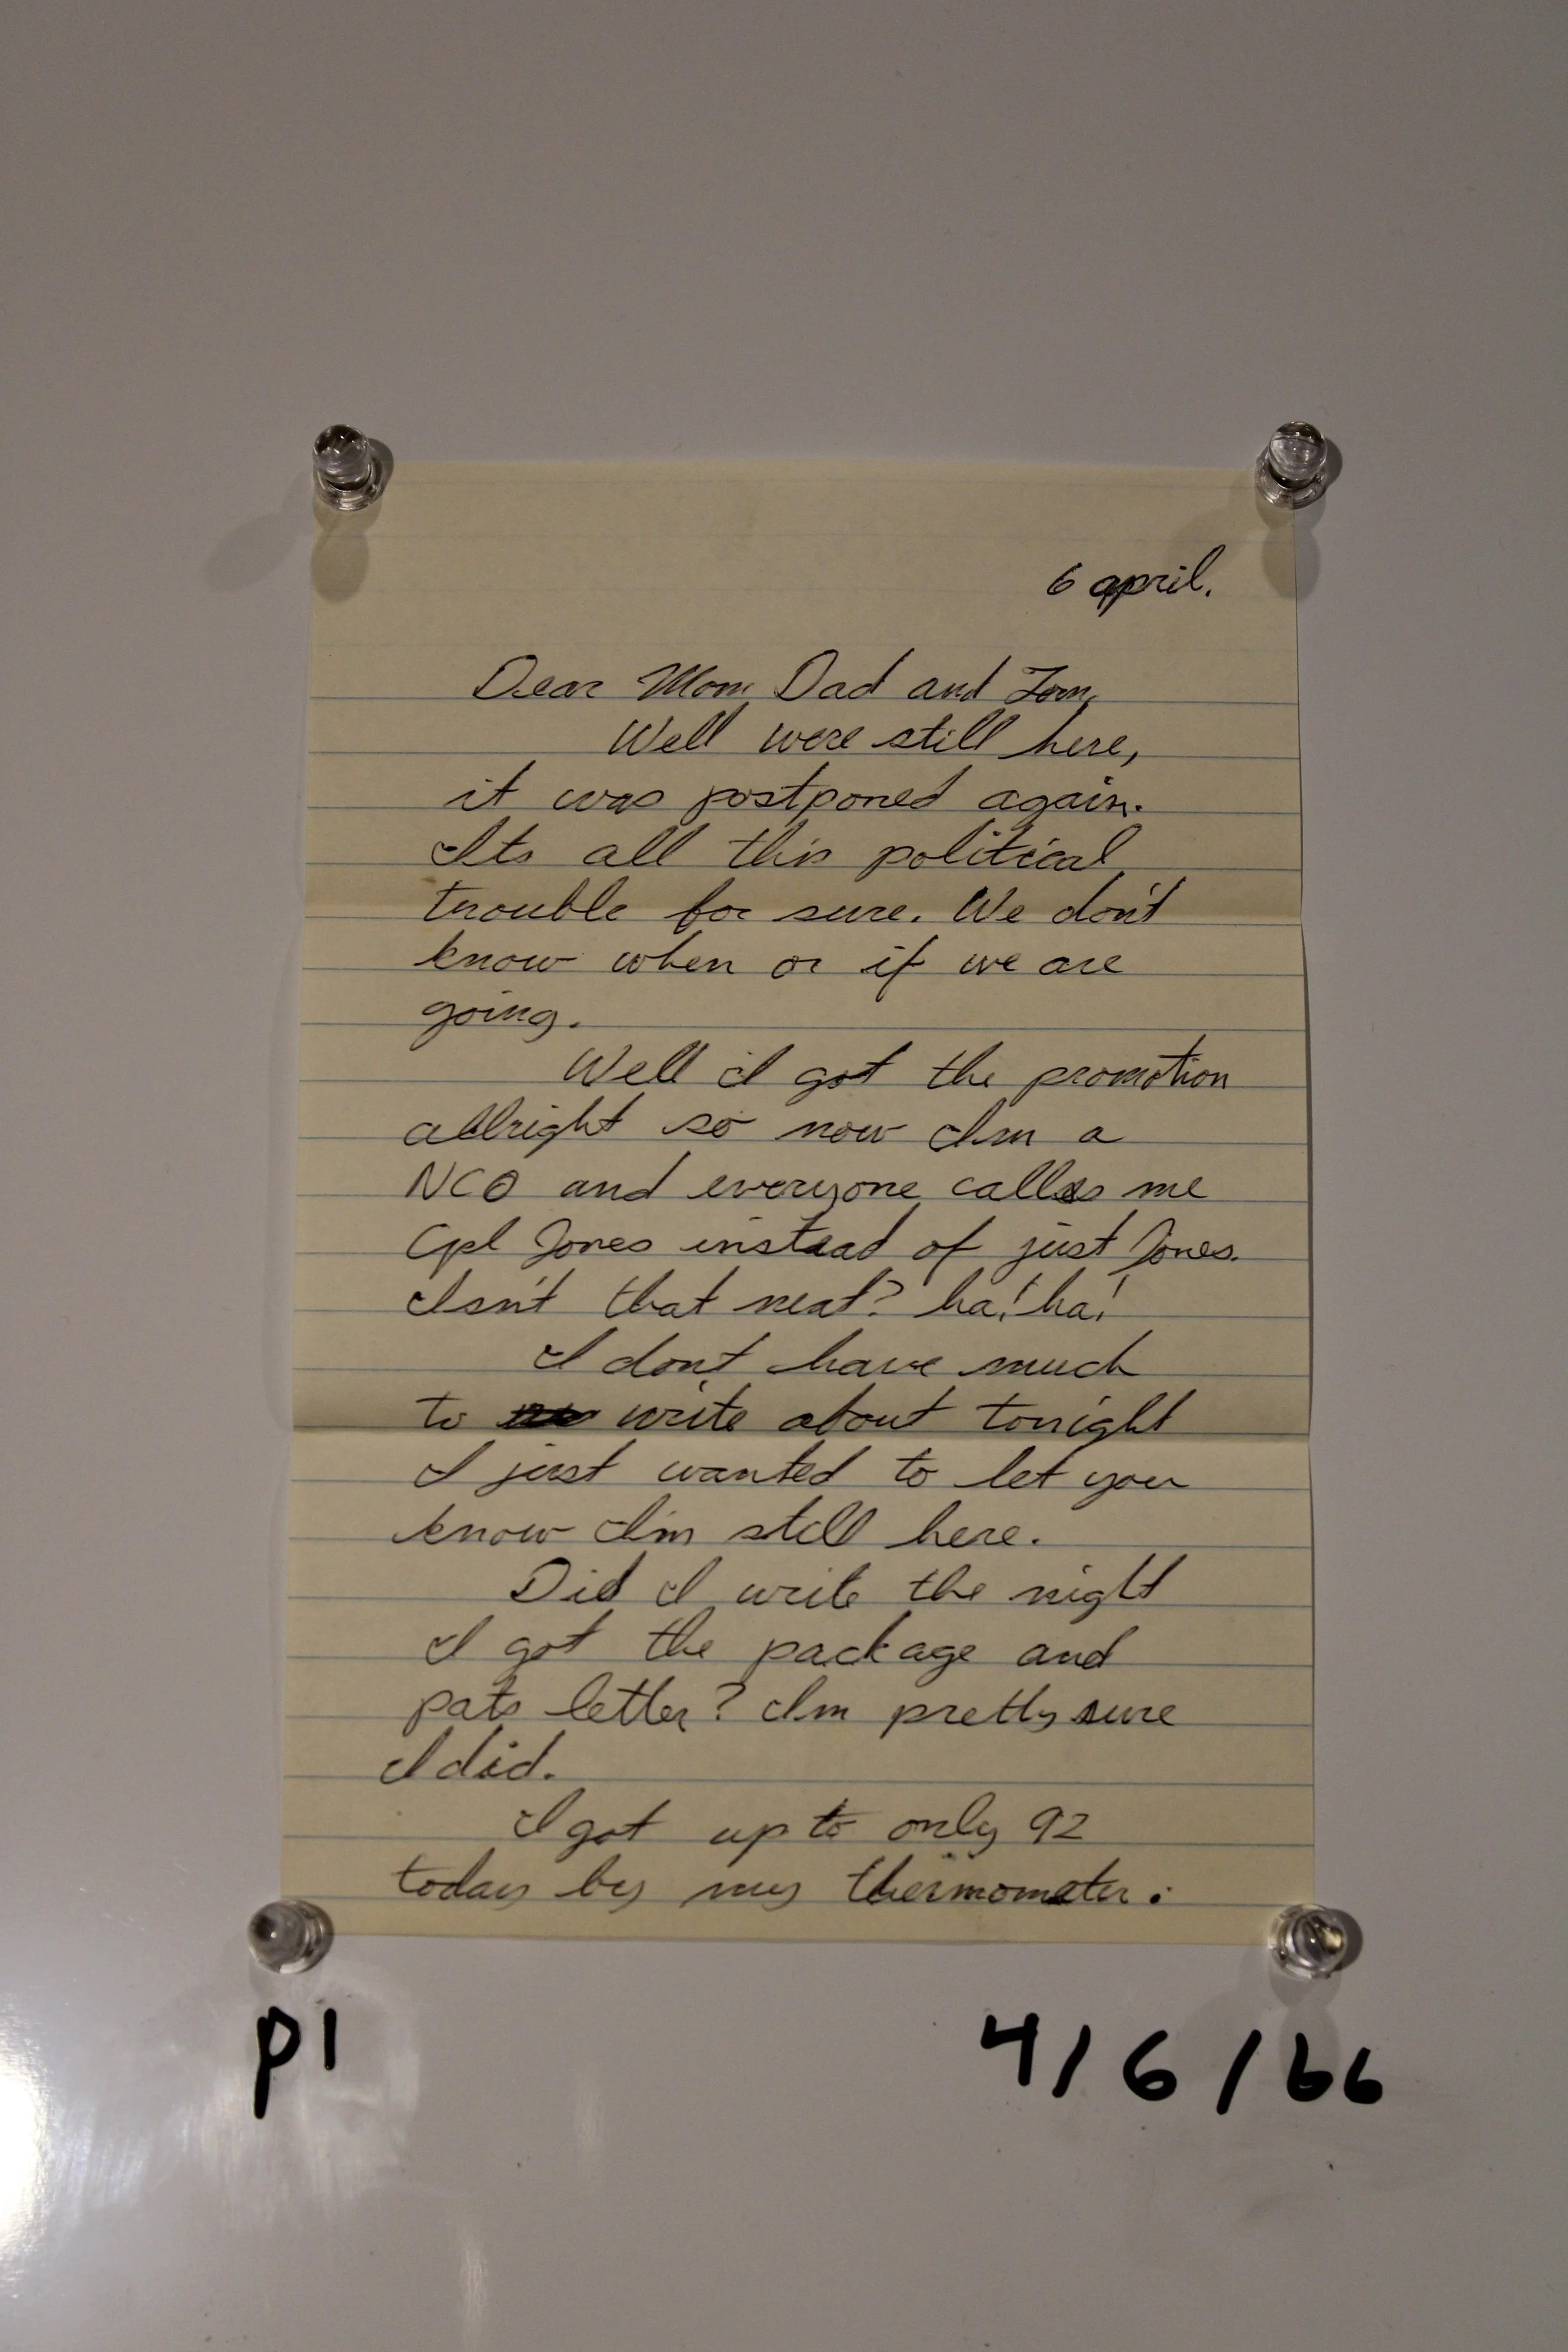 6 april.
Dear Mom, Dad and Tom,
Well were still here,
it was postponed again.
Its all this political
trouble for sure. We don't
know when or if we are
going.
Well I got the promotion
allright so now Im a
NCO and everyone calls me
Cpl Jones instead of just Jones.
Isn't that neat? ha! ha!
I dont have much
to write about tonight
I just wanted to let you
know I'm still here.
Did I write the night
I got the package and
pats letter? Im pretty sure
I did.
I got up to only 92
today by my thermometer.
p1
4/6/66